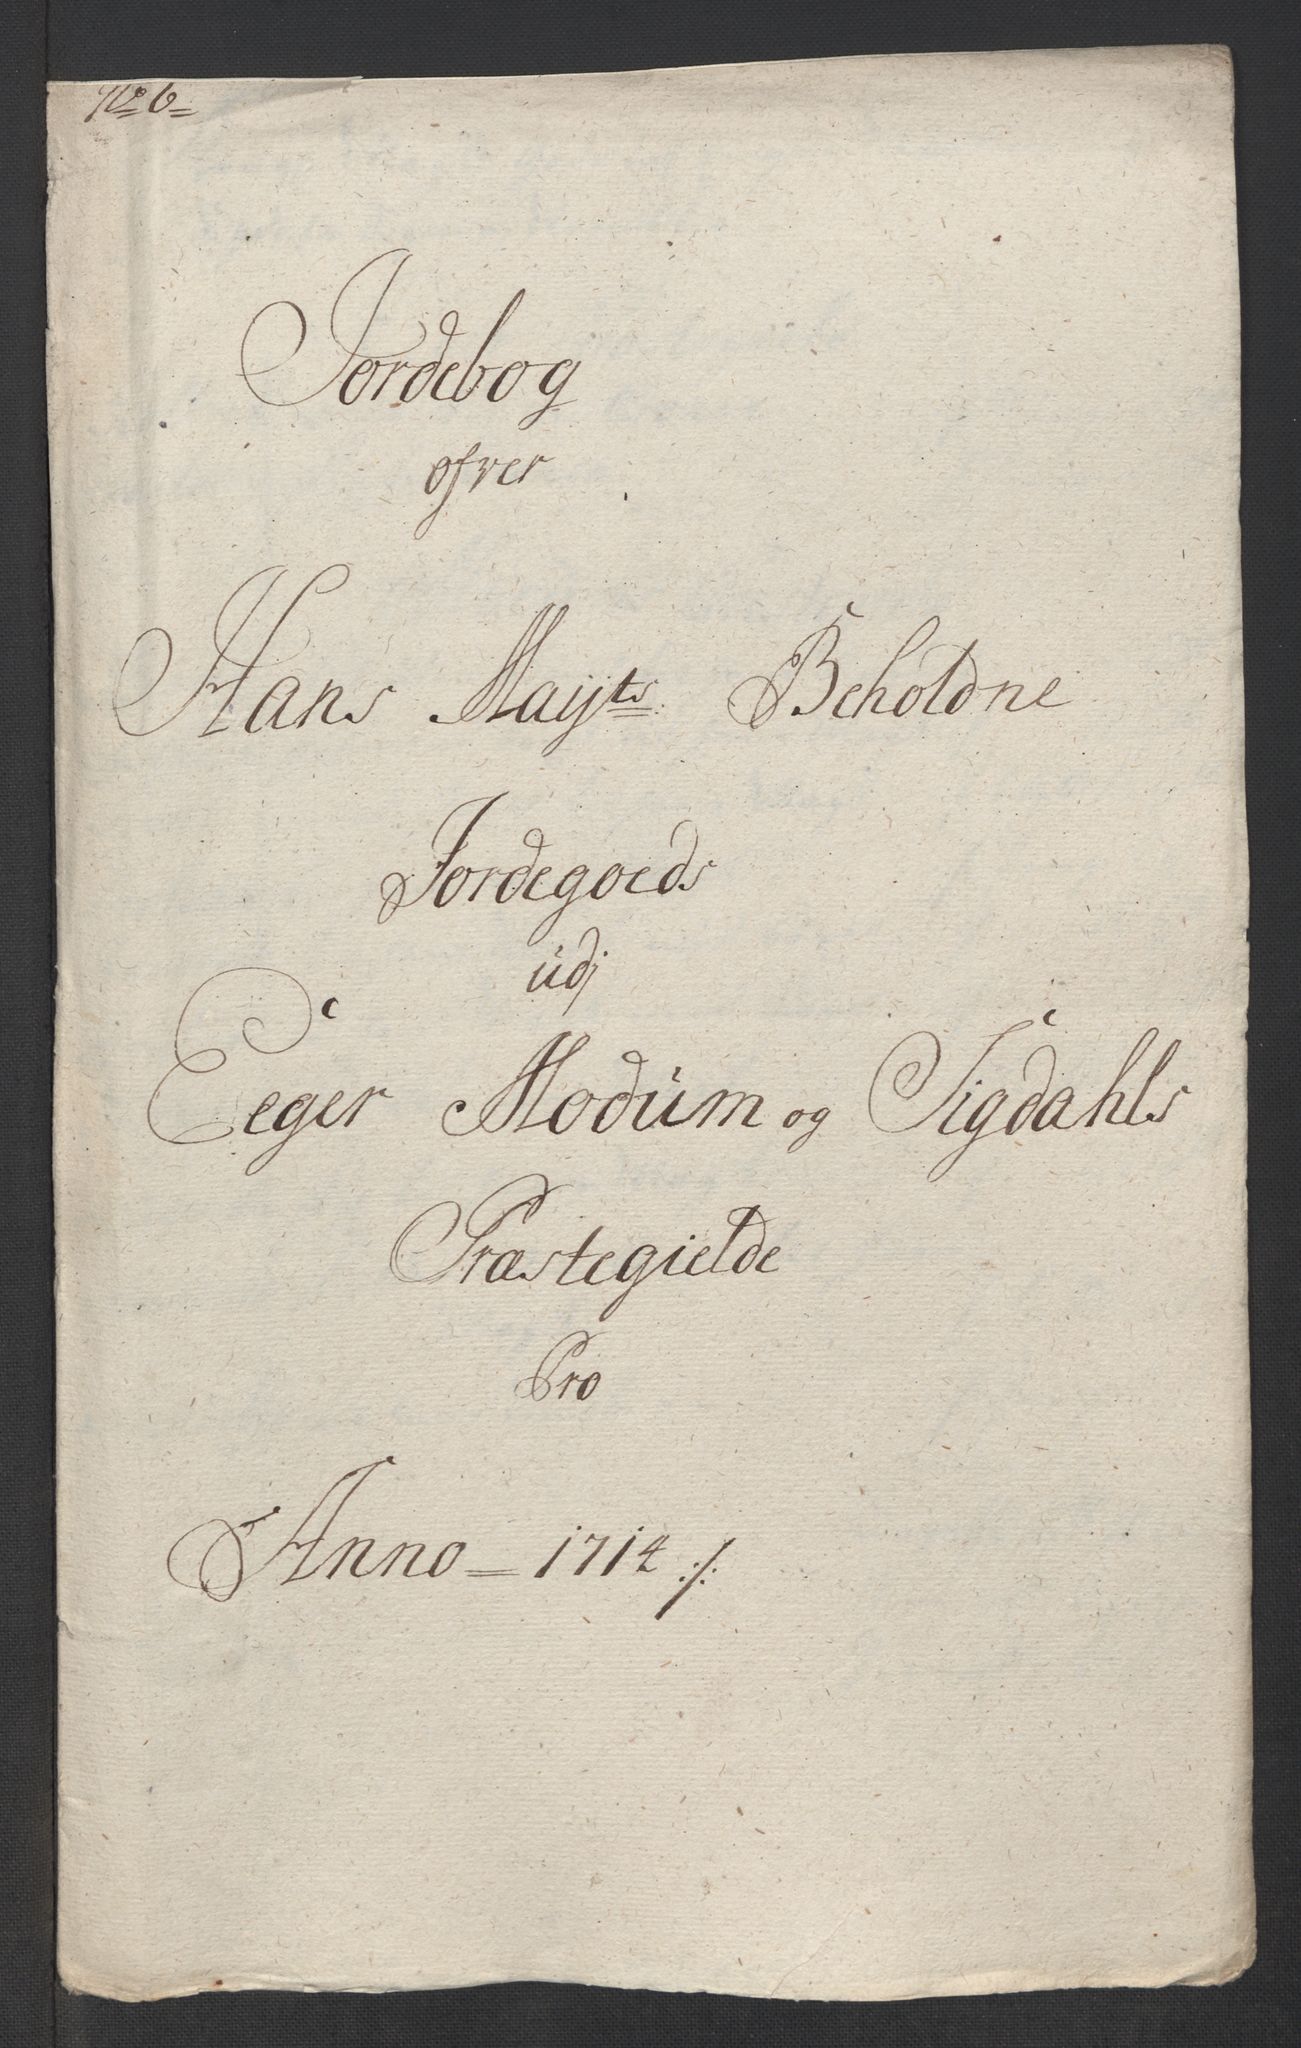 No 6
Jordebog
ofver
Hans Mayts Beholdne
Jordegoeds
udj
Eeger Modum og Sigdahls
Præstegielde
Pro
Anno 1714 ./.